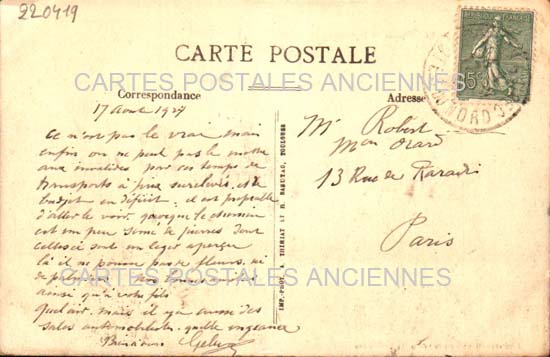 220419
REPUBLIQUE FRANÇAISE
15c
CARTE POSTALE
CARTES POSTALES ANCIENNES
Correspondance
Adresse
17 Aout 1927
Ce n'est pas le vrai mais
enfin on ne peut pas le mettre
aux invalides par ces temps de
transports à prix surélevés, et le
budget en déficit, il est
d'aller le voir, quoique le chemin
est un peu semé de pierres dont
celles ci sont un leger aperçu
là il ne pousse pas de fleurs, ni
de
ainsi qu'à votre fils
mais il y a aussi des
sales automobiles quelle vengeance
Mr Robert
13 Rue de Paradis
Paris
CARTES POSTALES ANCIENNES
IMP.-PHOT. A. THIRIAT ET H. BASUYAU, TOULOUSE